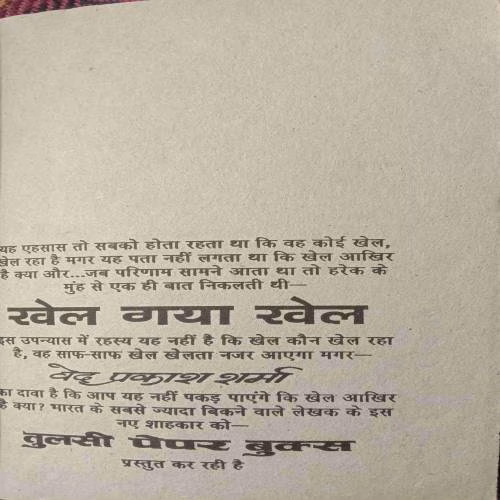 यह एहसास तो सबको होता रहता था कि वह कोई खेल,
खेल रहा है मगर यह पता नहीं लगता था कि खेल आखिर
है क्या और...जब परिणाम सामने आता था तो हरेक के
मुंह से एक ही बात निकलती थी—
खेल गया खेल
इस उपन्यास में रहस्य यह नहीं है कि खेल कौन खेल रहा
है, वह साफ-साफ खेल खेलता नजर आएगा मगर—
वेद प्रकाश शर्मा
का दावा है कि आप यह नहीं पकड़ पाएंगे कि खेल आखिर
है क्या? भारत के सबसे ज्यादा बिकने वाले लेखक के इस
नए शाहकार को—
तुलसी पेपर बुक्स
प्रस्तुत कर रही है